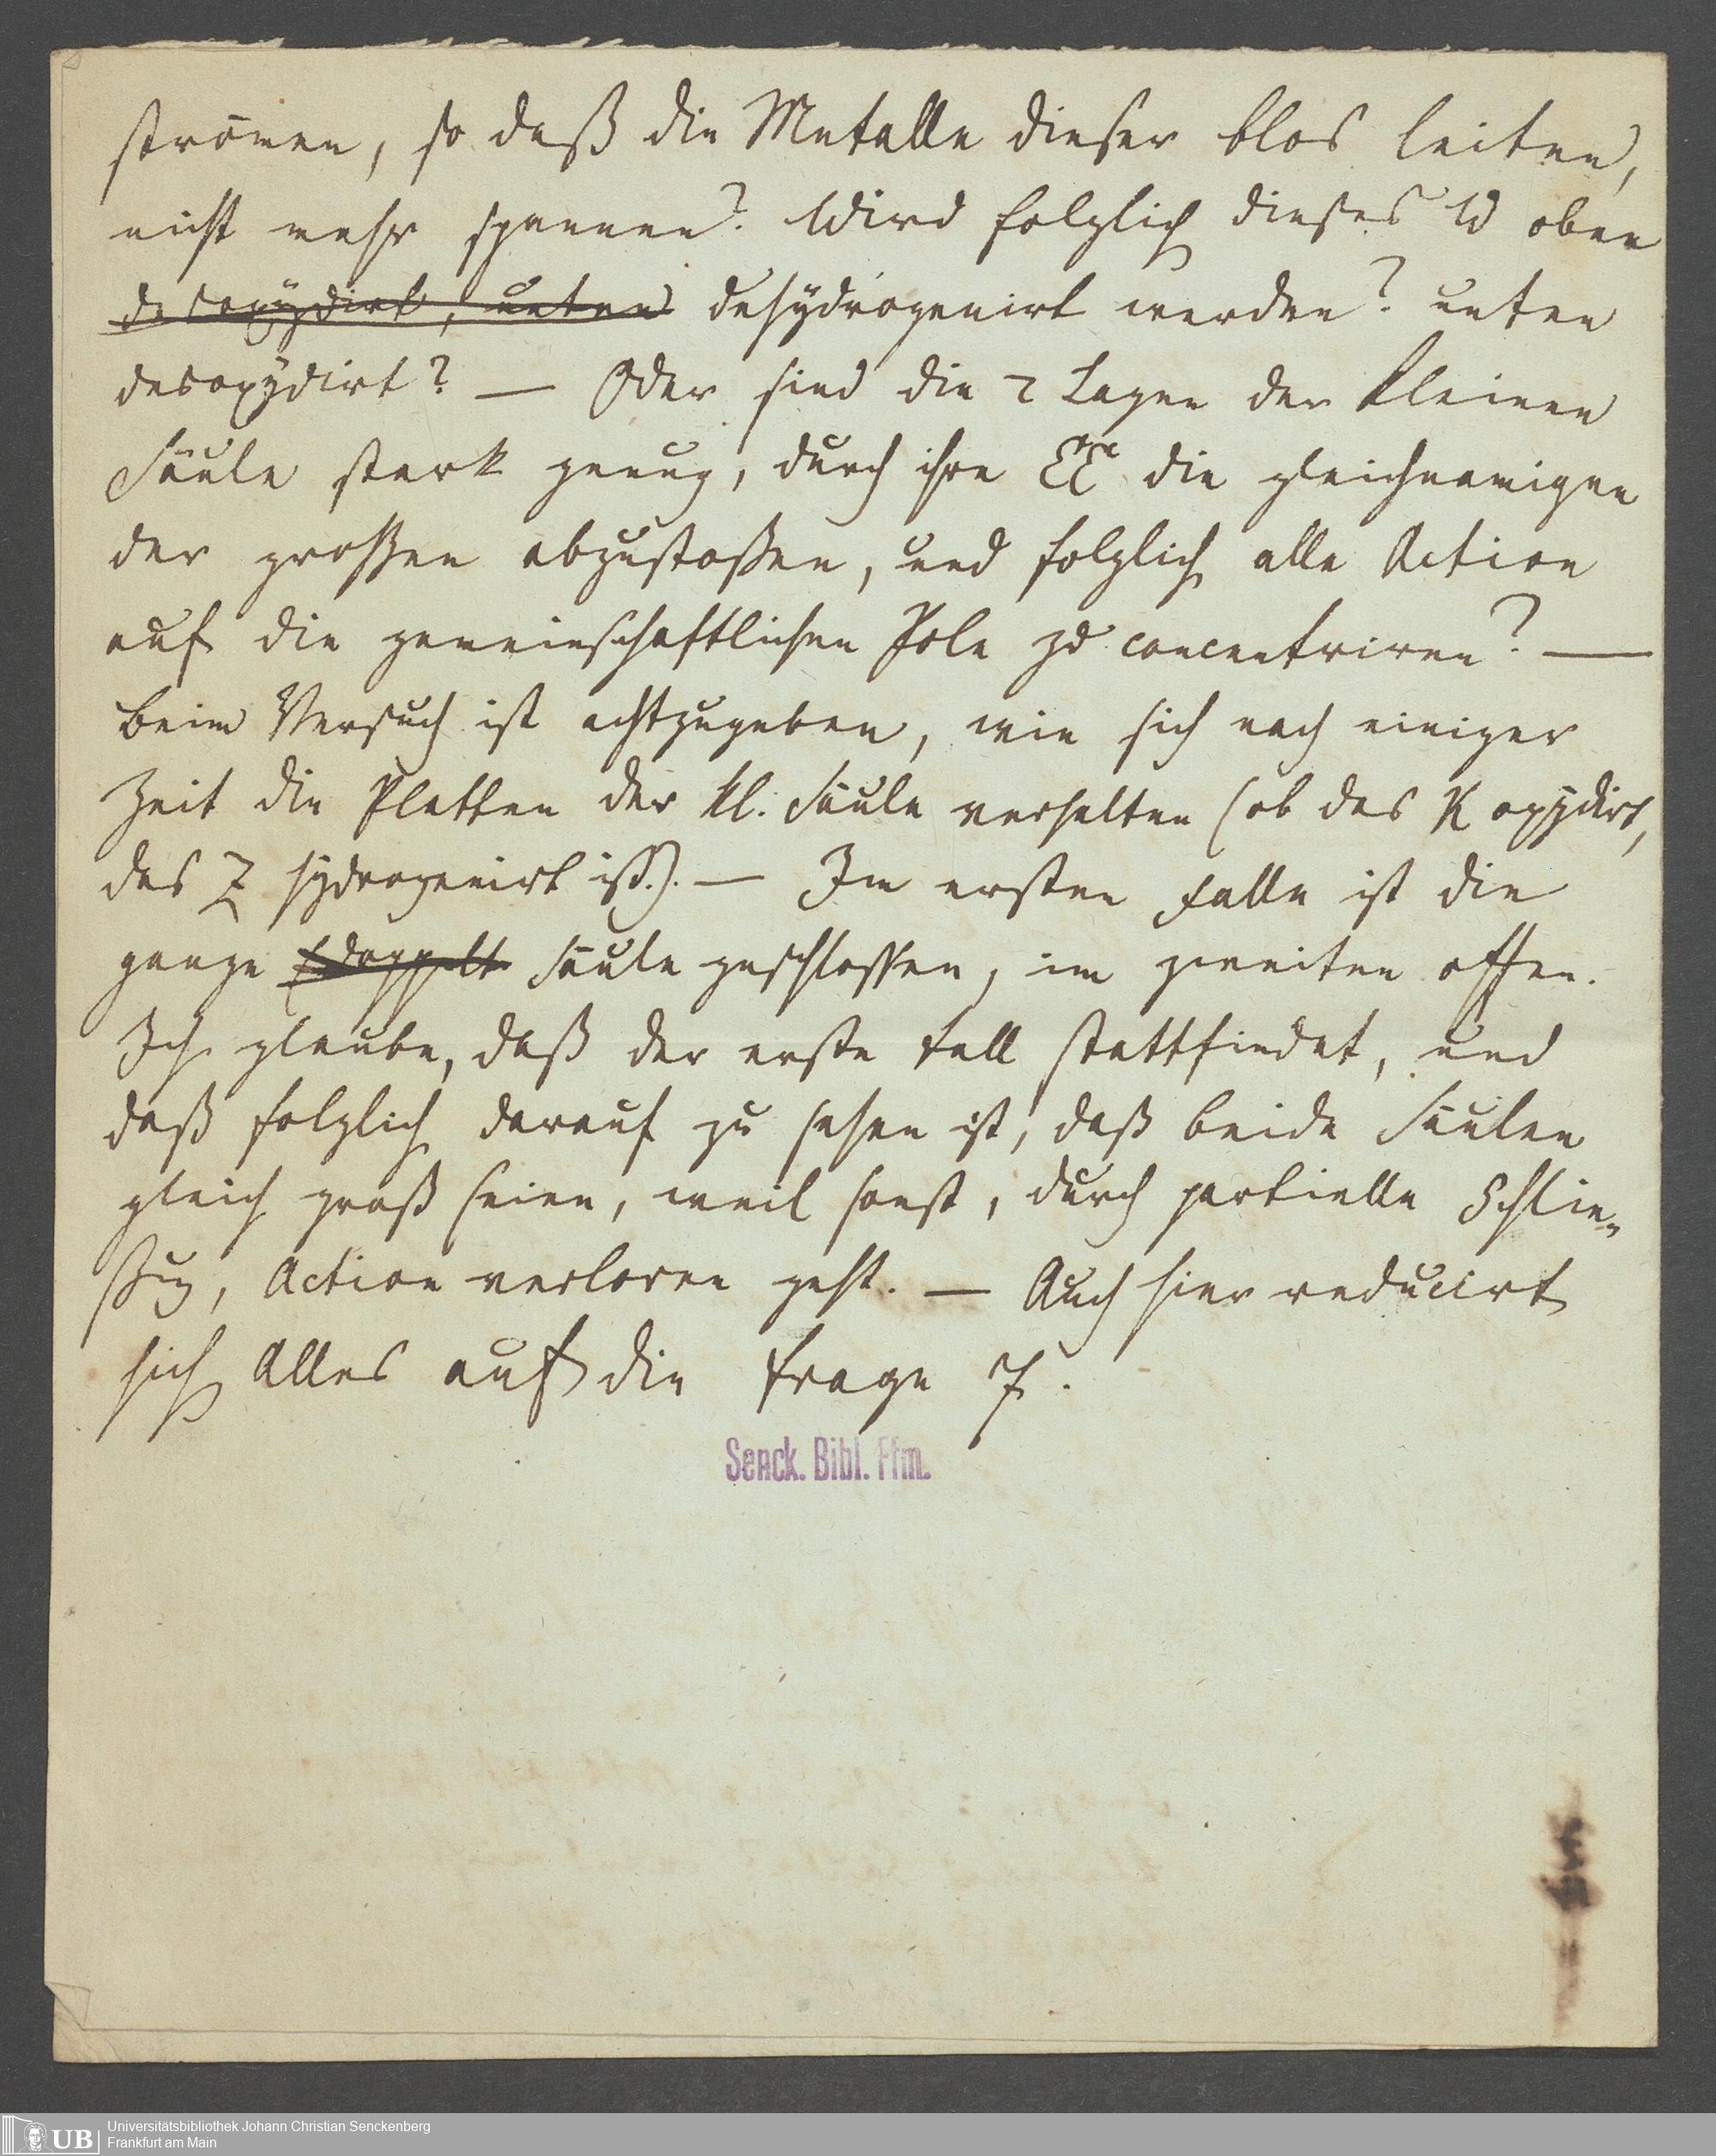 strömen, so daß die Metalle dieser blos leiten,
nicht mehr spannen? Wird folglich dieses W oben
desoxÿdirt, unten dehÿdrogenirt werden? unten
desoxÿdirt? — Oder sind die 2 Lagen der kleinen
Säule stark genug, durch ihre EE die gleichnamigen
der großen abzustoßen, und folglich alle Action
auf die gemeinschaftlichen Pole zu concentriren? —
Beim Versuch ist achtzugeben, wie sich nach einiger
Zeit die Platten der kl. Säule verhalten (ob das K oxÿdirt,
das Z hÿdrogenirt ist.). — Im ersten Falle ist die
ganze (doppelt Säule geschlossen, im zweiten offen.
Ich glaube, daß der erste Fall stattfindet, und
daß folglich darauf zu sehen ist, daß beide Säulen
gleich groß seien, weil sonst, durch partielle Schlie-
ßug, Action verloren geht. — Auch hier reducirt
sich Alles auf die Frage 7.
Senck. Bibl. Ffm.
UB
Universitätsbibliothek Johann Christian Senckenberg
Frankfurt am Main